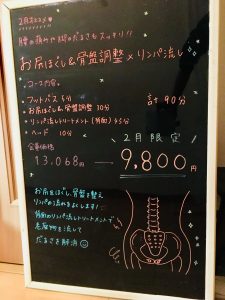 2月オススメ
腰の痛みや脚のだるさもスッキリ!!
お尻ほぐし&骨盤調整×リンパ流し
コース内容
・フットバス 5分
・お尻ほぐし&骨盤調整 30分
・リンパ流しトリートメント(背面) 45分
・ヘッド 10分
計90分
2月限定!
会員価格
13,068円 → 9,800円
お尻をほぐし、骨盤を整え
リンパの流れをよくします!
背面のリンパ流しトリートメントで
老廃物を流して
だるさを解消